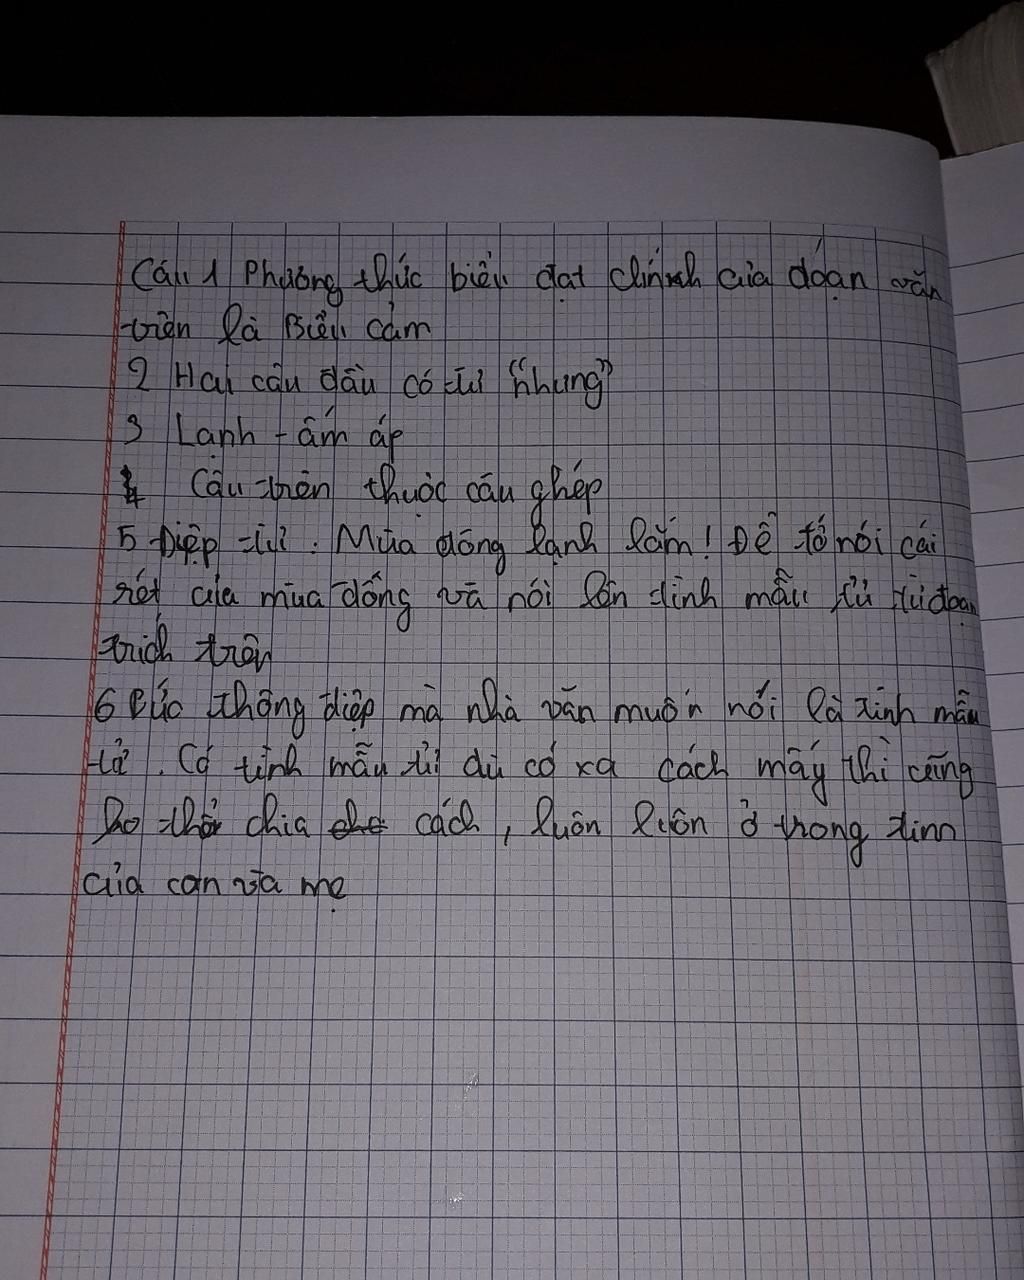 Câu 1 Phương thức biểu đạt chính của đoạn văn
trên là Biểu cảm
2 Hai câu đầu có từ "nhung"
3 Lạnh - ấm áp
4 Câu trên thuộc câu ghép
5 Điệp từ. Mùa đông lạnh lắm! Để tỏ nói cái
rét của mùa đông và nói lên tình mẫu tử từ đoạn
trích trên
6 Bức thông điệp mà nhà văn muốn nói là tình mẫu
tử. Có tình mẫu tử dù có xa cách mấy thì cũng
ko thể chia cách, luôn luôn ở trong tim
của con và mẹ